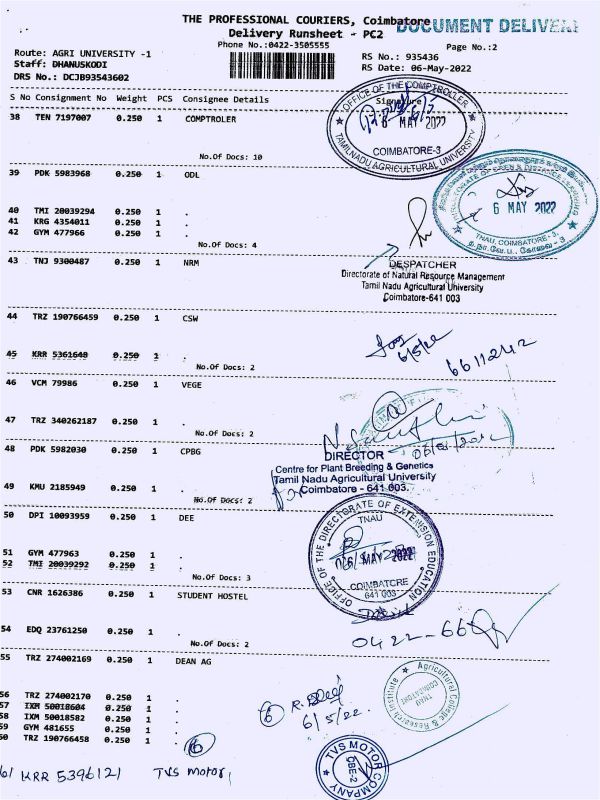 THE PROFESSIONAL COURIERS, Coimbatore
DOCUMENT DELIVERY
Delivery Runsheet - PC2
Phone No.:0422-3505555
Page No.:2
Route: AGRI UNIVERSITY -1
RS No.: 935436
Staff: DHANUSKODI
RS Date: 06-May-2022
DRS No.: DCJB93543602
S No Consignment No Weight PCS Consignee Details Signature
38 TEN 7197007 0.250 1 COMPTROLER
OFFICE OF THE COMPTROLLER
6 MAY 2022
COIMBATORE-3
TAMILNADU AGRICULTURAL UNIVERSITY
No.Of Docs: 10
39 PDK 5983968 0.250 1 ODL
6 MAY 2022
TNAU, COIMBATORE - 3.
40 TMI 20039294 0.250 1 .
41 KRG 4354011 0.250 1 .
42 GYM 477966 0.250 1 .
No.Of Docs: 4
43 TNJ 9300487 0.250 1 NRM
DESPATCHER
Directorate of Natural Resource Management
Tamil Nadu Agricultural University
Coimbatore-641 003
44 TRZ 190766459 0.250 1 CSW
6/5/22
6611242
45 KRR 5361648 0.250 1 .
No.Of Docs: 2
46 VCM 79986 0.250 1 VEGE
47 TRZ 340262187 0.250 1 .
No.Of Docs: 2
48 PDK 5982030 0.250 1 CPBG
DIRECTOR
Centre for Plant Breeding & Genetics
Tamil Nadu Agricultural University
for Coimbatore - 641 003.
49 KMU 2185949 0.250 1 .
No.Of Docs: 2
50 DPI 10093959 0.250 1 DEE
OFFICE OF THE DIRECTORATE OF EXTENSION EDUCATION
TNAU
06 MAY 2022
COIMBATORE
641 003
51 GYM 477963 0.250 1 .
52 TMI 20039292 0.250 1 .
No.Of Docs: 3
53 CNR 1626386 0.250 1 STUDENT HOSTEL
54 EDQ 23761250 0.250 1 .
No.Of Docs: 2
0422-66
55 TRZ 274002169 0.250 1 DEAN AG
Agricultural College & Research Institute
TNAU
COIMBATORE
56 TRZ 274002170 0.250 1 .
57 IXM 50018604 0.250 1 .
58 IXM 50018582 0.250 1 .
59 GYM 481655 0.250 1 .
60 TRZ 190766458 0.250 1 .
6
6
6/5/22.
61 KRR 5396121 TVS motor,
TVS MOTOR COMPANY
CBE-2